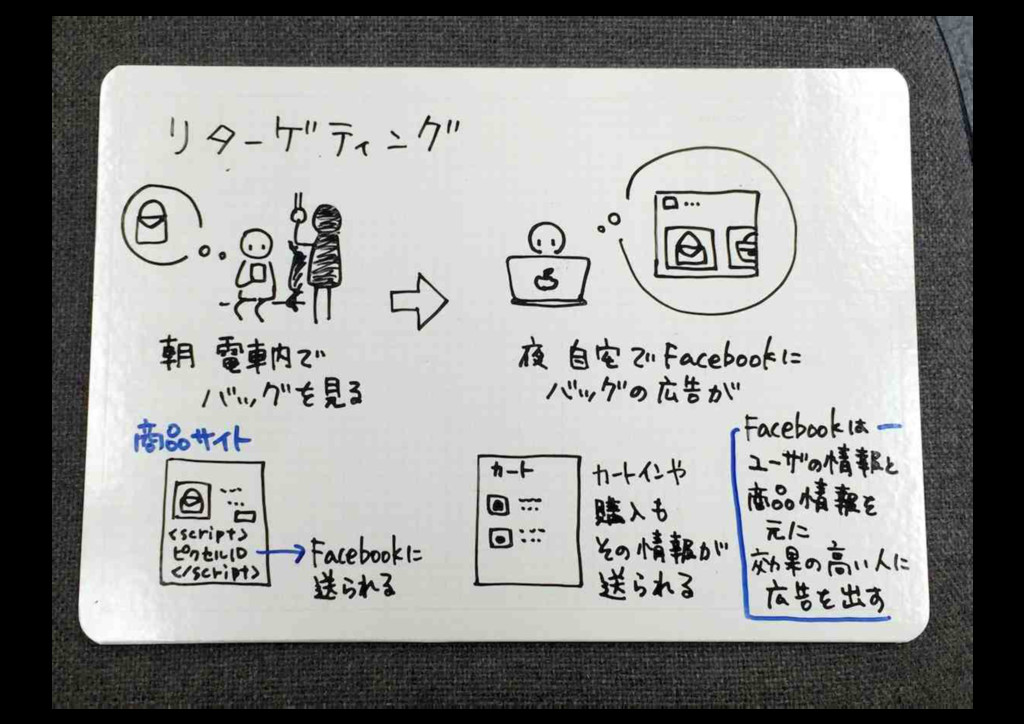 リターゲティング
朝 電車内で
バッグを見る
夜 自宅でFacebookに
バッグの広告が
商品サイト
<script>
ピクセルID
</script>
Facebookに
送られる
カート
カートインや
購入も
その情報が
送られる
Facebookは
ユーザの情報と
商品情報を
元に
効果の高い人に
広告を出す